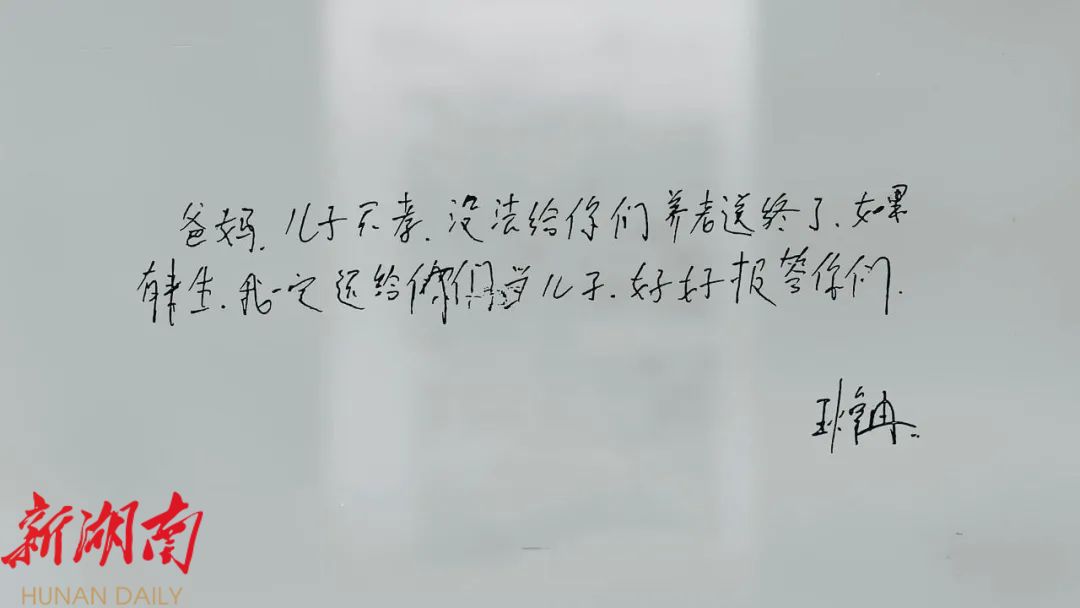 爸妈.儿子不孝.没法给你们养老送终了.如果
有来生.我一定还给你们当儿子.好好报答你们.
新湖南
HUNAN DAILY